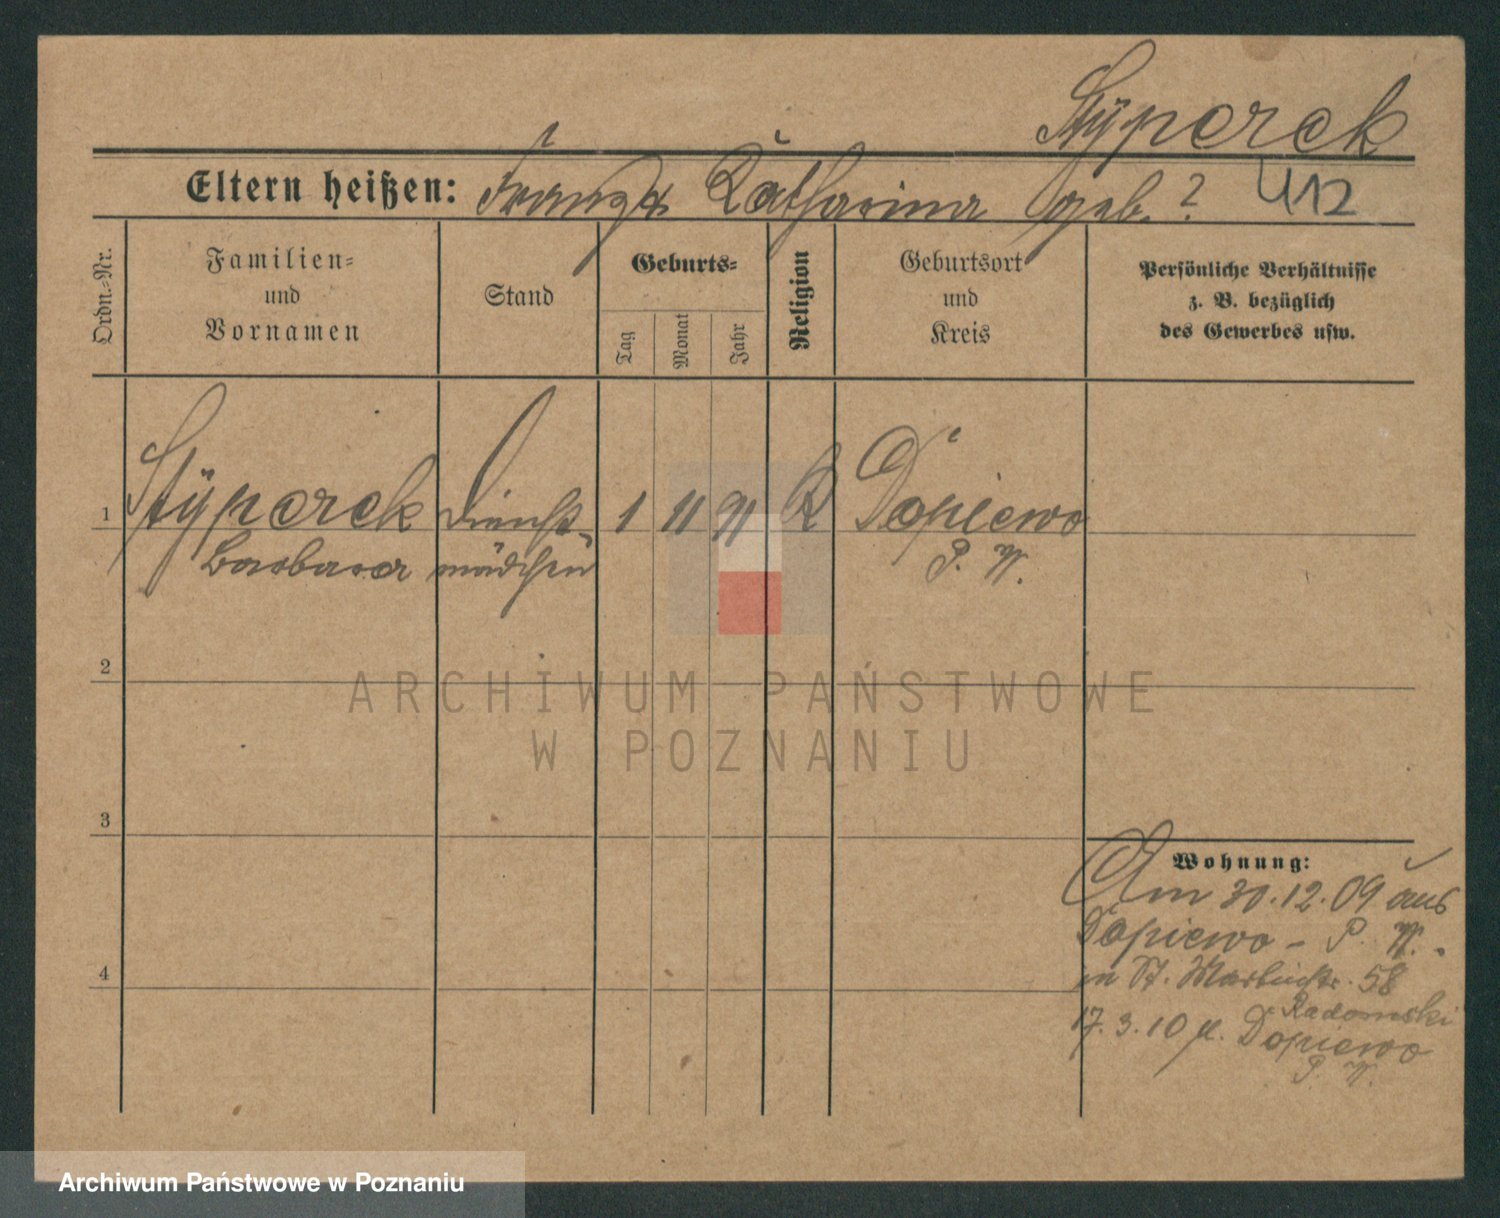 Stÿperek
Eltern heißen: Franz & Katharina geb. ?
Ordn.-Nr.
Familien-
und
Vornamen
Stand
Geburts-
Tag
Monat
Jahr
Religion
Geburtsort
und
Kreis
Persönliche Verhältnisse
z. B. bezüglich
des Gewerbes usw.
1 Stÿperek Dienst- 1 11 91 K Dopiewo
Barbara mädchen P. W.
2
ARCHIWUM PAŃSTWOWE
W POZNANIU
3
Wohnung:
Am 30.12.09 aus
Dopiewo - P. W.
in St. Martinstr. 58
Radomski
17.3.10 Dopiewo
P. W.
4
Archiwum Państwowe w Poznaniu